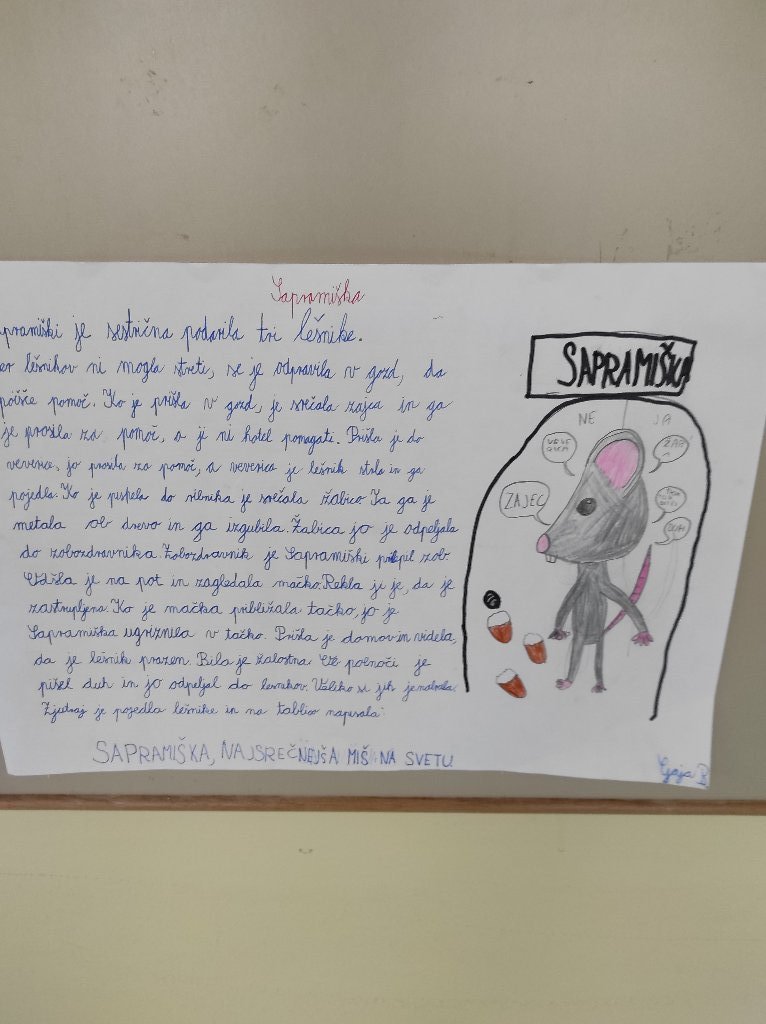 Sapramiška
apramiški je sestrična podarila tri lešnike.
er lešnikov ni mogla streti, se je odpravila v gozd, da
poišče pomoč. Ko je prišla v gozd, je srečala zajca in ga
je prosila za pomoč, a ji ni hotel pomagati. Prišla je do
veverice, jo prosila za pomoč, a veverica je lešnik strla in ga
pojedla. Ko je prispela do ribnika je srečala žabico Ta ga je
metala ob drevo in ga izgubila. Žabica jo je odpeljala
do zobozdravnika Zobozdravnik je Sapramiški zob
je na pot in zagledala mačko. Rekla ji je, da je
zastrupljena. Ko je mačka približala tačko, jo je
Sapramiška ugriznila v tačko. Prišla je domov in videla,
da je lešnik prazen. Bila je žalostna polnoči je
duh in jo odpeljal do lešnikov. Veliko si jih je nabrala.
Zjutraj je pojedla lešnike in na tablico napisala:
SAPRAMIŠKA, NAJSREČNEJŠA MIŠ NA SVETU
SAPRAMIŠKA
NE JA
ZAJEC
DUH
Gaja B